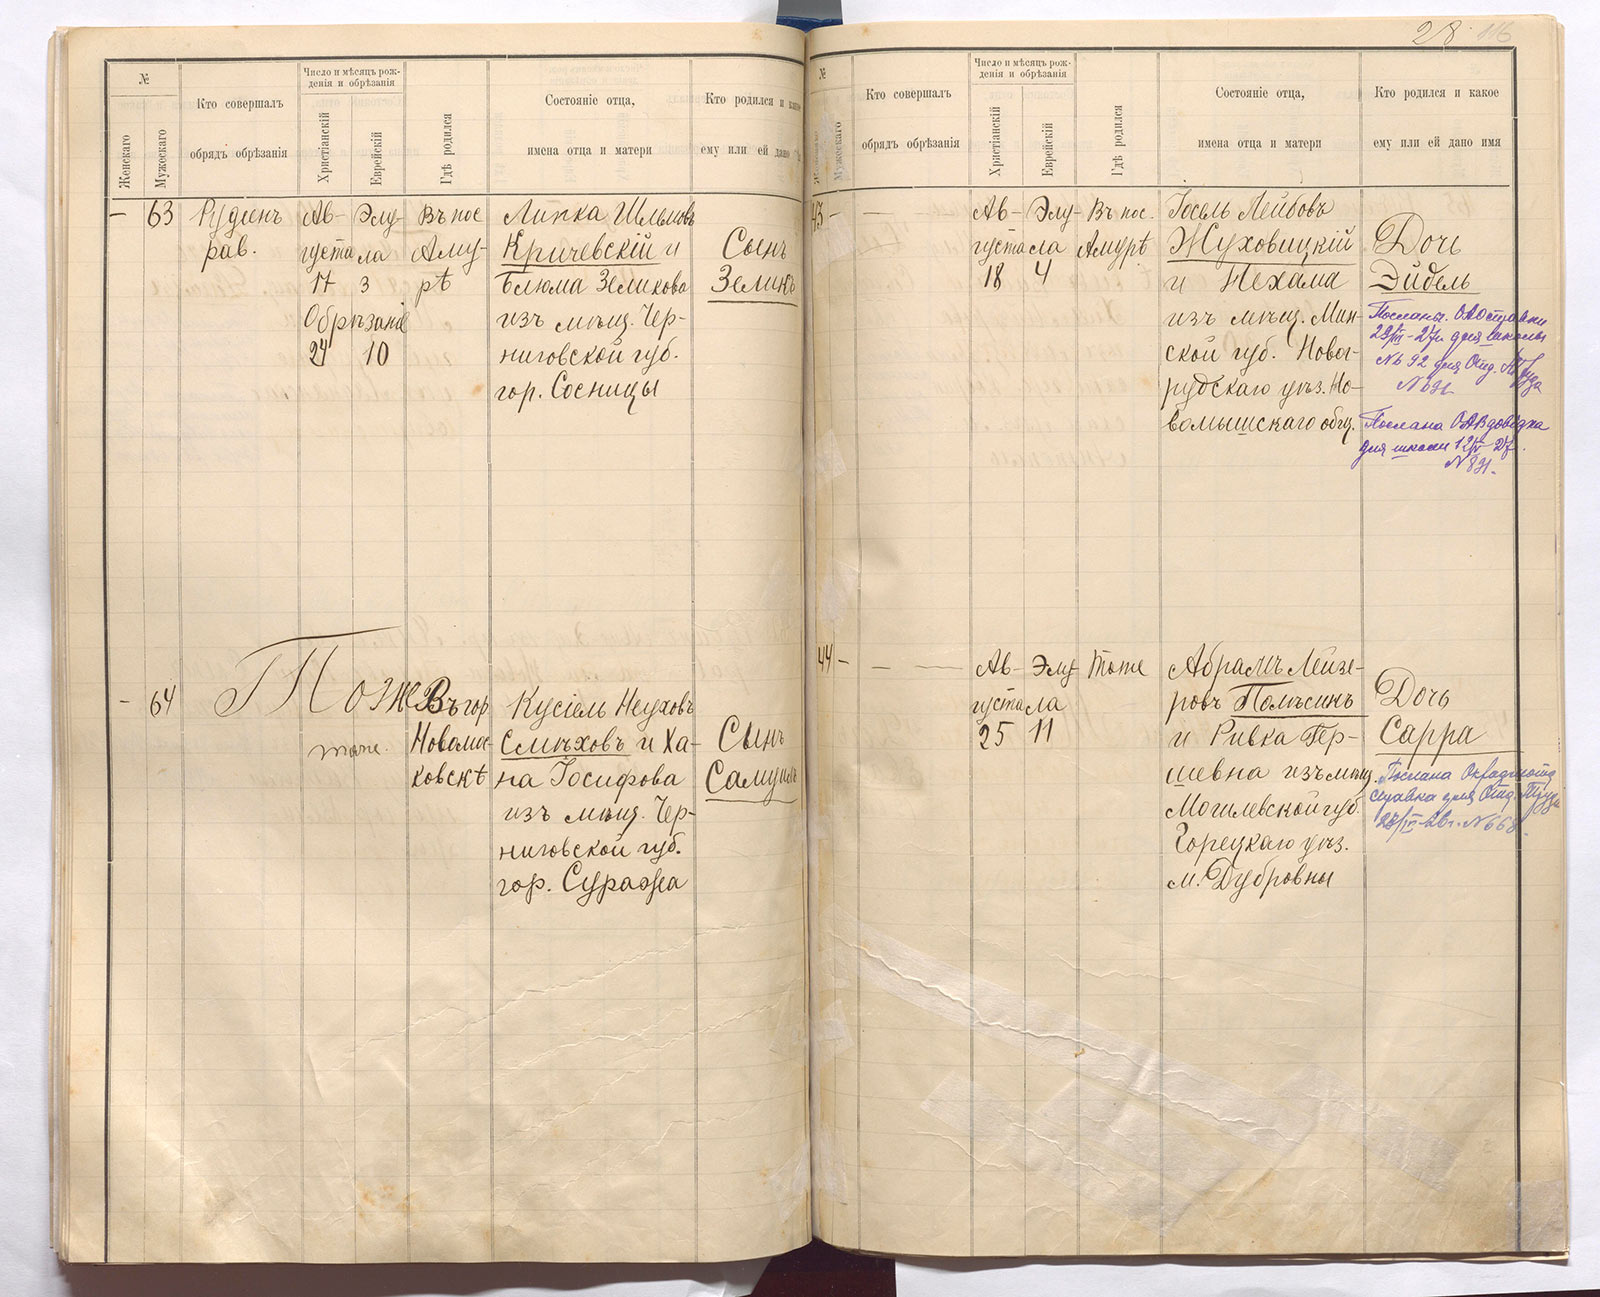 28 116
№
Женскаго
Мужескаго
Кто совершалъ
обрядъ обрѣзанія
Число и мѣсяцъ рож-
денія и обрѣзанія
Христіанскій
Еврейскій
Гдѣ родился
Состояніе отца,
имена отца и матери
Кто родился и какое
ему или ей дано
– 63
Рудинъ
рав.
Ав-
густа
17
Обрѣзаніе
24
Элу-
ла
3
10
Въ пос
Аму-
рѣ
Липка Шльомовъ
Кричевскій и
Блюма Зеликова
изъ мѣщ. Чер-
ниговской губ.
гор. Сосницы
Сынъ
Зеликъ
– 64
Тоже
тоже.
Въ гор
Новомос-
ковскѣ
Кусіель Неуховъ
Смѣховъ и Ха-
на Іосифова
изъ мѣщ. Чер-
ниговской губ.
гор. Суража
Сынъ
Самуилъ
№
Мужескаго
Кто совершалъ
обрядъ обрѣзанія
Число и мѣсяцъ рож-
денія и обрѣзанія
Христіанскій
Еврейскій
Гдѣ родился
Состояніе отца,
имена отца и матери
Кто родился и какое
ему или ей дано имя
43 – —
Ав-
густа
18
Элу-
ла
4
Въ пос.
Амурѣ
Іосель Лейбовъ
Жуховицкій
и Нехама
изъ мѣщ. Мин-
ской губ. Новог-
рудскаго уѣз. Но-
вомышскаго общ.
Дочь
Эйдель
для школы
№ 92 для Отд. Труда
Послана ОАВ довідка
для школи 12/IV 27
N 831.
44 – – —
Ав-
густа
25
Элу-
ла
11
Тоже
Абрамъ Лейзе-
ровъ Полѣсинъ
и Ривка Гер-
шевна изъ мѣщ.
Могилевской губ
Горецкаго уѣз.
м. Дубровны
Дочь
Сарра
Послана
справка для Отд. Труда
N 668.